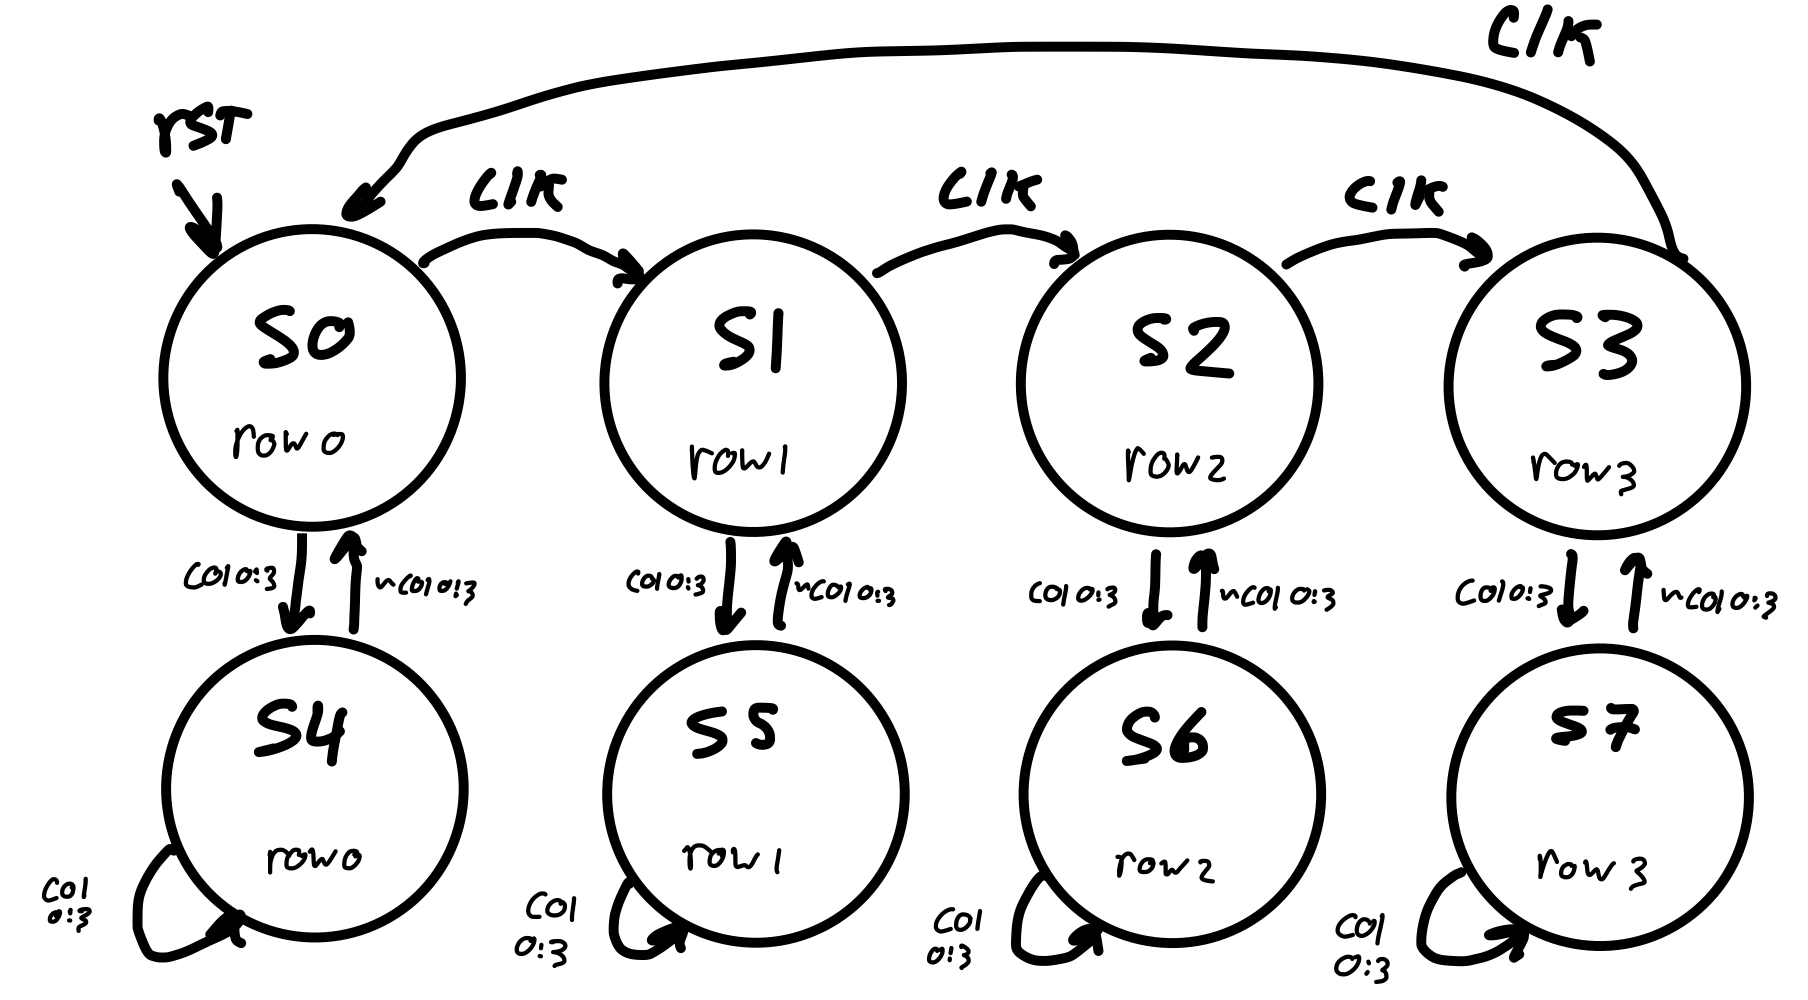 clk
rst
clk
clk
clk
S0
S1
S2
S3
row 0
row 1
row 2
row 3
col 0:3
~col 0:3
col 0:3
~col 0:3
col 0:3
~col 0:3
col 0:3
~col 0:3
S4
S5
S6
S7
row 0
row 1
row 2
row 3
col
0:3
col
0:3
col
0:3
col
0:3